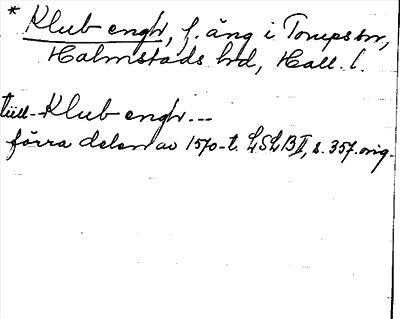 * Klub engh, f. äng i Torups sn,
Halmstads hd, Hall. l.
till Klub engh ---
förra delen av 1570-t. LSLB II, s. 357. orig.